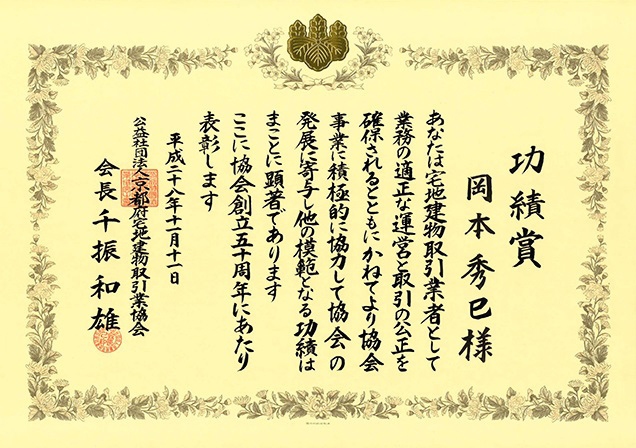 功績賞
岡本秀巳様
あなたは宅地建物取引業者として
業務の適正な運営と取引の公正を
確保されるとともにかねてより協会
事業に積極的に協力して協会の
発展に寄与し他の模範となる功績は
まことに顕著であります
ここに協会創立五十周年にあたり
表彰します
平成二十八年十一月十一日
公益社団法人京都府宅地建物取引業協会
会長千振和雄